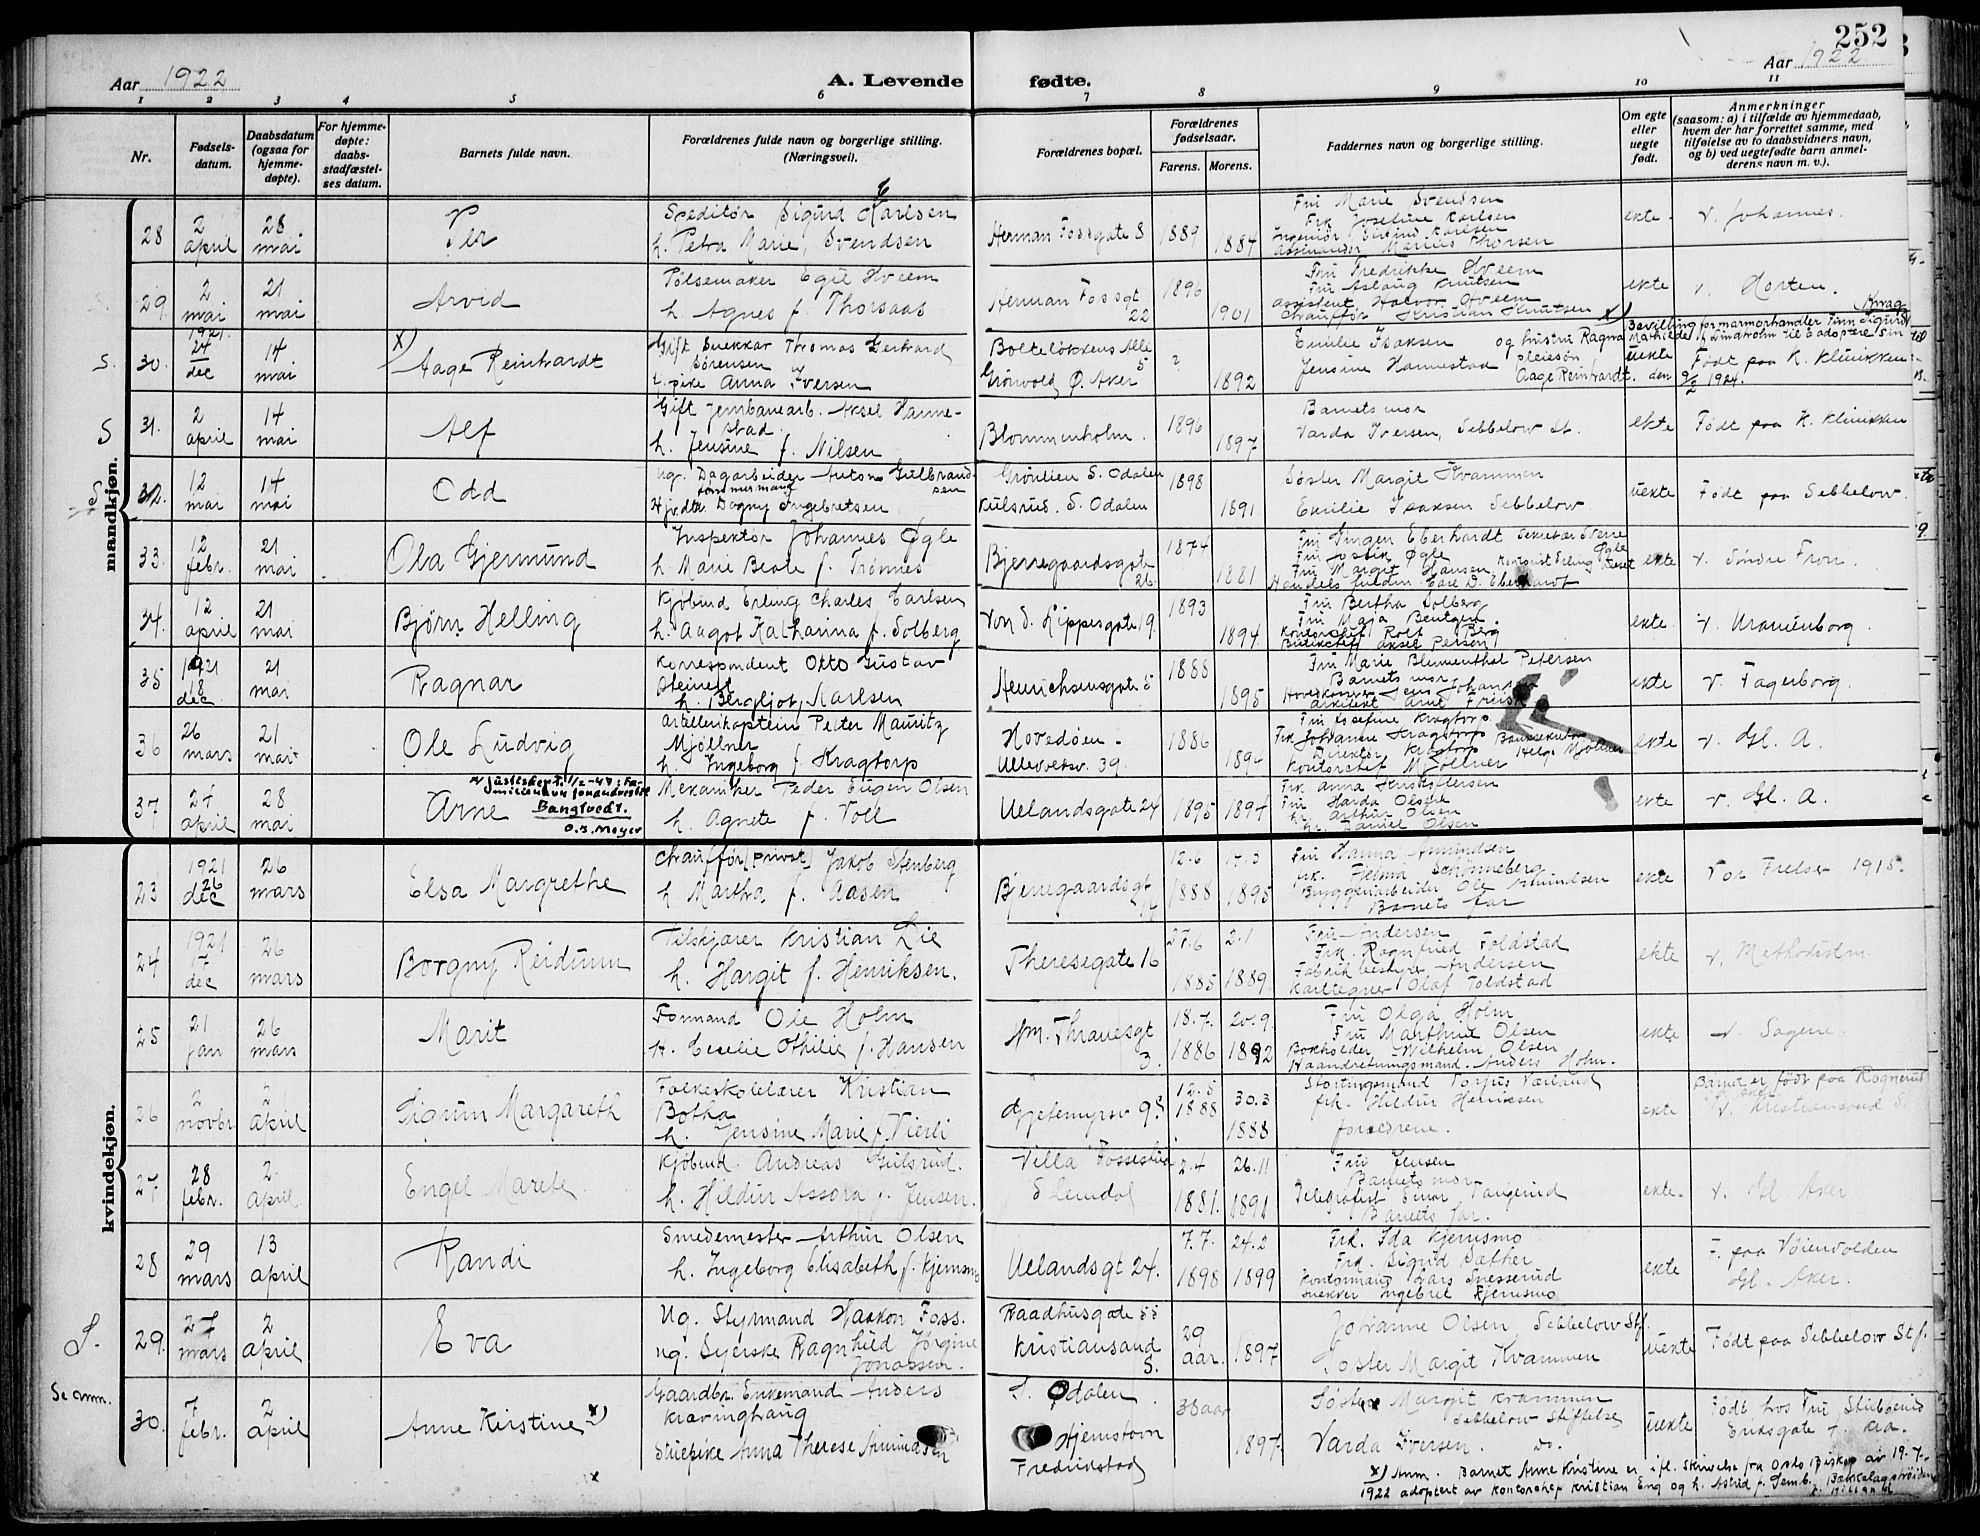 252
Aar 1922
A. Levende fødte.
Aar 1922
1 2 3 4 5 6 7 8 9 10 11
Nr.
Fødsels-
datum.
Daabsdatum
(ogsaa for
hjemme-
døpte).
For hjemme-
døpte:
daabs-
stadfæstel-
ses datum.
Barnets fulde navn.
Forældrenes fulde navn og borgerlige stilling.
(Næringsvei).
Forældrenes bopæl.
Forældrenes
fødselsaar.
Farens. Morens.
Faddernes navn og borgerlig stilling.
Om egte
eller
uegte
født.
Anmerkninger
(saasom: a) i tilfælde av hjemmedaab,
hvem der har forrettet samme, med
tilføielse av to daabsvidners navn,
og b) ved uegtefødte barn anmel-
derens navn m. v.).
mandkjøn.
28
2
april
28
mai
Per
Speditør Sigurd Karlsen
h. Petra Marie, Svendsen
Herman Fossgate 8
1889
1884
Fru Marie Svendsen
Frk Josefine Karlsen
Marius Thorsen
ekte
v. Johannes.
29
2
mai
21
mai
Arvid
Pølsemaker Egil Hveem
h. Agnes f. Thorsaas
Herman Fossgt
22
1896
1901
Fru Fredrikke Hveem
Fru Aslaug Knutsen
Assistent Halvor Hveem
Chauffør Kristian Knutsen
ekte
v. Horten.
S.
30.
1921
24
dec
14
mai
x)
Aage Reinhardt
Gift Snekker Thomas Gerhard
Sørensen
pike Anna Iversen
Bolteløkkens Alle
5
Grønvold, Ø. Aker
2
1892
Emilie Isaksen
Jensine Hannestad
x) Bevilling for marmorhandler Finn Sigurd Kvrag
og hustru Ragna Mathilde f. Lindholm til å adoptere sin
pleiesøn
Aage Reinhardt. den 9/2 1924.
uekte
Født paa K. Klinikken
S
31.
2
april
14
mai
Alf
Gift Jernbanearb. Aksel Hanne-
stad
h. Jensine f. Nilsen
Blommenholm.
1896
1897
Barnets mor
Varda Iversen, Sebbelow St.
ekte
Født paa K. Klinikken
S
32.
12
mai
14
mai
Odd
ug. Dagarbeider Anton Gulbrand-
sen
Dagny Ingebretsen
Grønlien S. Odalen
Kulsrud. S. Odalen
1898
1891
Søster Margit Kvammen
Emilie Isaksen Sebbelow
uekte
Født paa Sebbelow.
33.
12
febr.
21
mai
Ola Gjermund
Inspektør Johannes Øgle
h. Marie Beate f. Trønnes
Bjerregaardsgate
26.
1874
1881
Fru Eberhardt Sekretær Sverre
Øgle
Fru Margit Hansen
ekte
v. Søndre Fron.
34.
12
april
21
mai
Bjørn Helling
Kjøbmd Erling Charles Carlsen
h. Aagot Katharina f. Solberg
Von d. Lippesgate 19.
1893
1894
Fru Bertha Solberg
Fru Maja Bentzen
Kontorchef Rolf Berg
Butikchef Aksel Persson
ekte
v. Uranienborg.
35
1921
18
dec
21
mai
Ragnar
Korrespondent Otto Gustav
Steinert
h. Bergljot, Karlsen
Henrichsensgate 5
1888
1895
Fru Marie Blumenthal Petersen
Barnets mor
Jens Johansen
Arkitekt Arne
ekte
v. Fagerborg.
36
26
mars
21
mai
Ole Ludvig
Artillerikaptein Peter Mauritz
Mjøllner
h. Ingeborg f. Kragtorp
Hovedøen.
Ullevoldsv. 39.
1886
1894
Fru Josefine Kragtorp
Frk Johanne Kragtorp
Direktør Kragtorp Helge Mjøllner
Kontorchef Mjøllner
ekte
v. Gl. A.
37
24
april
28
mai
Arne
Bangtvedt.
O.B. Meyer
Mekaniker Peder Eugen Olsen
h. Agnete f. Voll
Uelandsgate 24
1895
1894
Frk Anna
Fru Harda Olsen
Hr. Arthur Olsen
Hr. Daniel Olsen
ekte
v. Gl. A.
kvindekjøn.
23
1921
26
dec
26
mars
Elsa Margrethe
Chauffør (privat) Jakob Stenberg
h. Martha f. Aasen
Bjerregaardsgt
12.6
1888
1895
Fru Hanna Amundsen
Schønneberg
Byggearbeider Ole Amundsen
Barnets far
ekte
Vor Frelser 1915.
24
1921
17
dec
26
mars
Borgny Reidunn
Tilskjærer Kristian Lie
h. Hargit f. Henriksen.
Theresegate 16
27.6
1885
2.1
1889
Fru Andersen
Frk. Ragnfrid Foldstad
Fabrikbestyrer Andersen
Karttegner Olaf Foldstad
ekte
v. Methodistm.
25
21
jan
26
mars
Marit
Formand Ole Holm
h. Cecelie Othilie f. Hansen
Jm. Thranesgt
3.
18.7.
1886
20.9.
1892
Fru Olga Holm
Fru Marthine Olsen
Bokholder Wilhelm Olsen
Haandverksmand Anders Holm.
ekte
v. Sagene.
26
2
novbr
2
april
Sigrun Margareth
Folkeskolelærer Kristian
Botha
h. Jensine Marie f. Vierli
Gjetemyrsv 9
12.5
1888
30.3
1888
Stortingsmand Torjus Værland
frk. Hildur Henriksen
forældrene.
ekte
Barnet er født paa Rognerud
v. Kristiansand S.
27
28
febr.
2
april
Engel Marete
Kjøbmd. Andreas Gulsrud.
h. Hildur Assora f. Jensen.
Villa Fossestua
Slemdal
2.4
1881.
26.11
1891
Fru Jensen
Barnets mor
Telegrafist Einar Tangerud
Barnets far.
ekte.
v. Gl Aker
28
29
mars
13
april
Randi
Smedemester Arthur Olsen
h. Ingeborg Elisabeth f. Kjernsmo
Uelandsgt 24.
7.7.
1898
24.2
1899
Frk. Ida Kjernsmo
Frk. Sigrid Sæther
Kontormand Lars Snesserud
Snekker Ingebret Kjernsmo
ekte
F. paa Vøienvolden
Gl. Aker.
S.
29.
27
mars
2
april
Eva
Ug. Styrmand Haakon Foss.
ug. Syerske Ragnhild Jørgine
Jonassen.
Raadhusgate 55
Kristiansand
S.
29
aar.
1897
Johanne Olsen Sebbelow Stf.
Søster Margit Kvammen
uekte
Født paa Sebbelow Stf.
Se anm.
30.
7
febr.
2
april
Anne Kirstine x)
Gaardbr. Enkemand Anders
Kravinghaug
Stuepike Anna Therese Amundsen
S. Odalen
Hjemstavn
Fredrikstad
38 aar
1897.
Søster Margit Kvammen
Sebbelow Stiftelse
Varda Iversen. Do.
uekte
Født hos Fru Stubberud
Eriksgate 7. Kra.
x) Anm. Barnet Anne Kristine er ifl. skrivelse fra Oslo Biskop av 19.7.
1922 adoptert av kontorchef Kristian Eng og h. Astrid f. Semb.